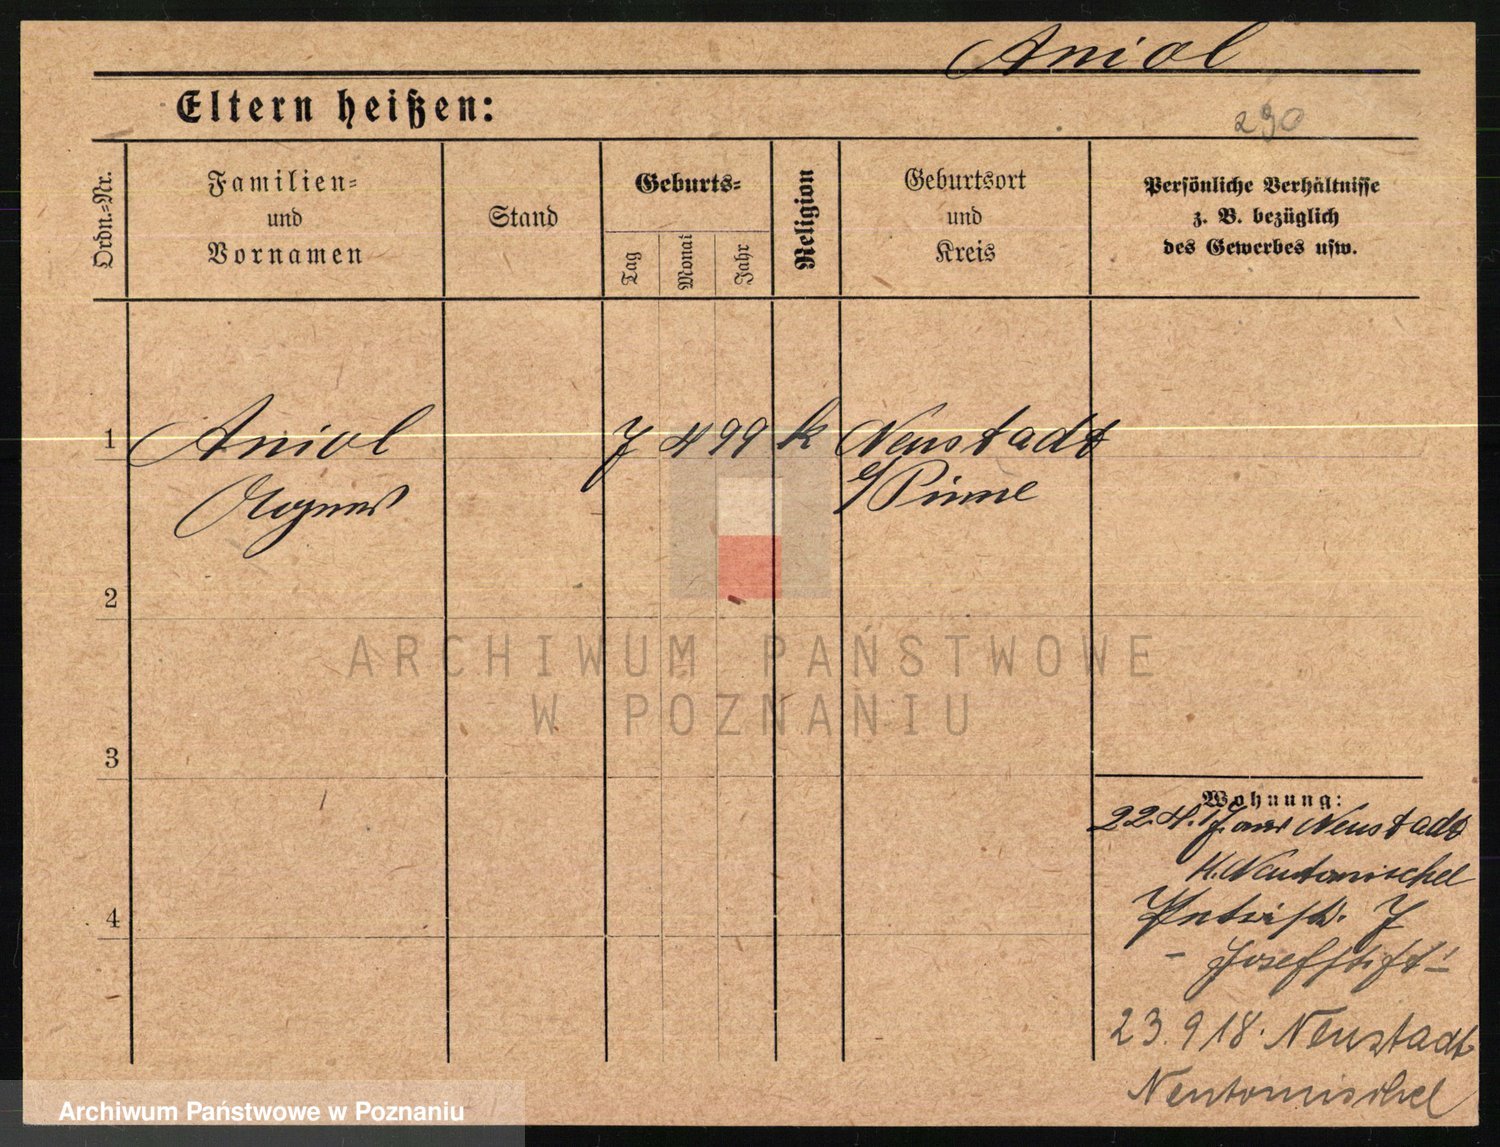 Aniol
Eltern heißen:
290
Ordn.=Nr.
Familien=
und
Vornamen
Stand
Geburts=
Tag
Monat
Jahr
Religion
Geburtsort
und
Kreis
Persönliche Verhältnisse
z. B. bezüglich
des Gewerbes usw.
1
Aniol
7 4 99 k Neustadt
Agnes
b/Pinne
2
ARCHIWUM PAŃSTWOWE
W POZNANIU
3
Wohnung:
22.4.17. aus Neustadt
K. Neutomischel
4
7
- Josefstift -
23.9.18. Neustadt
Neutomischel
Archiwum Państwowe w Poznaniu